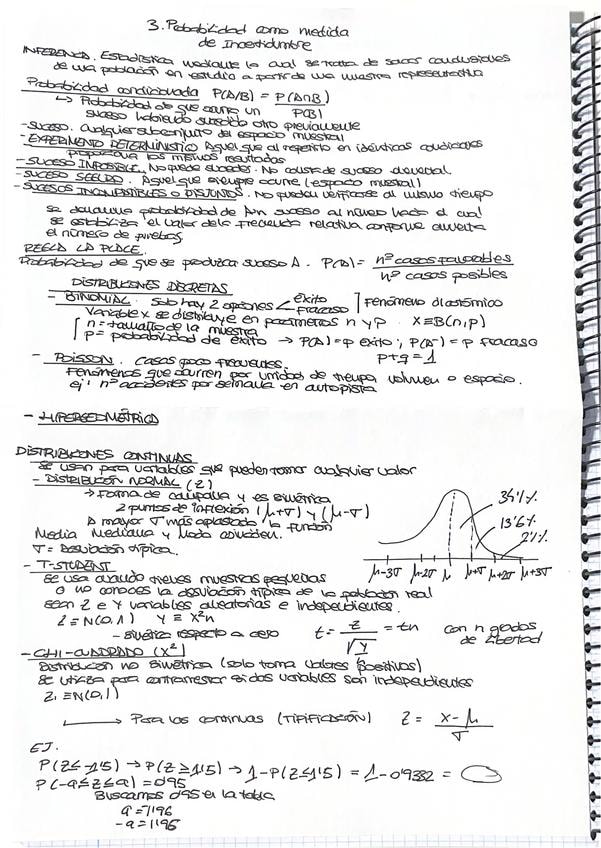 3. Probabilidad como medida
de Incertidumbre
INFERENCIA. Estadística mediante la cual se trata de sacar conclusiones
de una población en estudio a partir de una muestra representativa
Probabilidad condicionada P(A/B) = P(A∩B)
P(B)
↳ Probabilidad de que ocurra un
suceso habiendo sucedido otro previamente
- SUCESO. Cualquier subconjunto del espacio muestral
- EXPERIMENTO DETERMINISTICO Aquel que al repetirlo en idénticas condiciones
proporciona los mismos resultados
- SUCESO IMPOSIBLE. No puede suceder. No consta de suceso elemental
- SUCESO SEGURO. Aquel que siempre ocurre (espacio muestral)
- SUCESOS INCOMPATIBLES o DISJUNTOS. No pueden verificarse al mismo tiempo
se denomina probabilidad de un suceso al número hacia el cual
se estabiliza el valor de la frecuencia relativa conforme aumenta
el número de pruebas
REGLA LA PLACE.
Probabilidad de que se produzca suceso A. P(A) = nº casos favorables
nº casos posibles
DISTRIBUCIONES DISCRETAS
- BINOMIAL. Solo hay 2 opciones < éxito
fracaso ] Fenómeno dicotómico
Variable x se distribuye en parámetros n y p. X≡B(n,p)
[ n = tamaño de la muestra
p = probabilidad de éxito → P(A)=p éxito; P(A⁻) = p fracaso
p+q = 1
- POISSON. Casos poco frecuentes.
Fenómenos que ocurren por unidad de tiempo, volumen o espacio.
ej: nº accidentes por semana en autopista
- HIPERGEOMÉTRICA
DISTRIBUCIONES CONTINUAS
se usan para variables que pueden tomar cualquier valor
- DISTRIBUCIÓN NORMAL (Z)
→ Forma de campana y es simétrica
2 puntos de inflexión (μ+σ) y (μ-σ)
A mayor σ más aplastada la función
Media Mediana y Moda coinciden.
σ = Desviación típica.
34'1%
13'6%
2'1%
μ-3σ μ-2σ μ μ+σ μ+2σ μ+3σ
- T-STUDENT
se usa cuando tienes muestras pequeñas
o no conoces la desviación típica de la población real
sean Z e Y variables aleatorias e independientes.
Z ≡ N(0,1) Y ≡ X²n
- simétrica respecto a cero
t = Z
√Y = tn con n grados
de libertad
- CHI-CUADRADO (X²)
Distribución no simétrica (solo toma valores positivos)
se utiliza para contrarrestar si dos variables son independientes
Z₁ ≡N(0,1)
→ Para las continuas (TIPIFICACIÓN) Z = x-μ
σ
EJ.
P(Z≤-1'5) → P(Z≥1'5) → 1-P(Z≤1'5) = 1-0'9332 =
P(-a≤Z≤a) = 0'95
Buscamos 0'95 en la tabla
a = 1'96
-a = 1'96